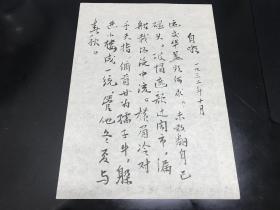 自嘲 一九三二年十月
运交华盖欲何求。未敢翻身已
碰头。破帽遮颜过闹市，漏
船载酒泛中流。横眉冷对
千夫指，俯首甘为孺子牛。躲
进小楼成一统，管他冬夏与
春秋。